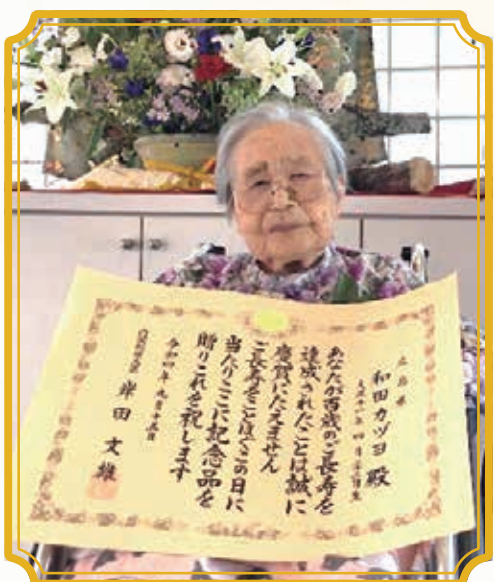 広島県
和田カツヨ殿
あなたが百歳のご長寿を
達成されたことは誠に
慶賀にたえません
ご長寿をことほぎこの日に
当たりここに記念品を
贈りこれを祝します
令和四年九月十五日
内閣総理大臣 岸田文雄